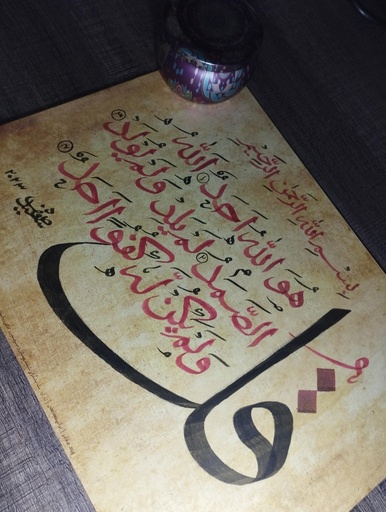 بِسْمِ اللهِ الرَّحْمٰنِ الرَّحِيْمِ
قُل
هُوَ اللهُ اَحَدٌ ١ اَللهُ
الصَّمَدُ ٢ لَمْ يَلِدْ وَلَمْ يُولَدْ ٣
وَلَمْ يَكُنْ لَهُ كُفُوًا اَحَدٌ ٤